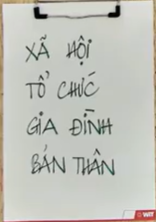 XÃ HỘI
TỔ CHỨC
GIA ĐÌNH
BẢN THÂN